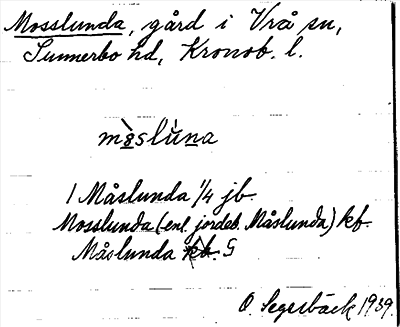 Mosslunda, gård i Vrå sn,
Sunnerbo hd, Kronob. l.
mòslùna
1 Måslunda 1/4 jb
Mosslunda (enl. jordeb. Måslunda) kb.
Måslunda kb. G
O. Segerbäck 1939.